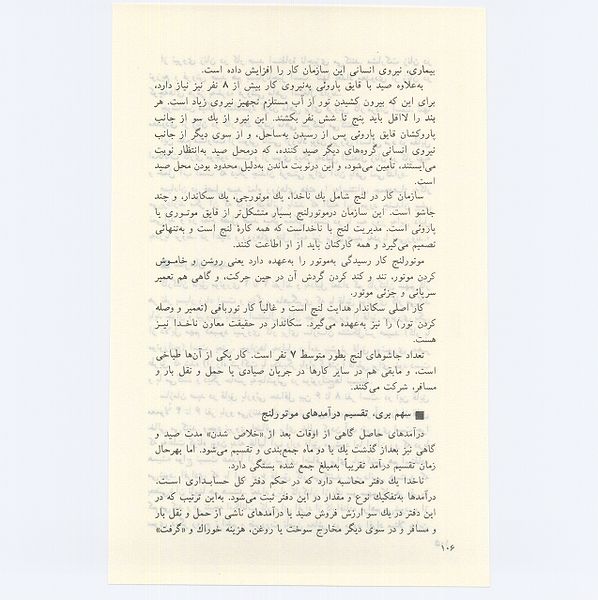 بیماری، نیروی انسانی این سازمان کار را افزایش داده است.
به‌علاوه صید با قایق پاروئی به‌نیروی کار بیش از ۸ نفر نیز نیاز دارد،
برای این که بیرون کشیدن نور از آب مستلزم تجهیز نیروی زیاد است. هر
بند را لااقل باید پنج تا شش نفر بکشند. این نیرو از یك سو از جانب
پاروکشان قایق پاروئی پس از رسیدن به‌ساحل، و از سوی دیگر از جانب
نیروی انسانی گروه‌های دیگر صید کننده، که درمحل صید به‌انتظار نوبت
می‌ایستند، تأمین می‌شود، و این درنوبت ماندن به‌دلیل محدود بودن محل صید
است.
سازمان کار در لنج شامل یك ناخدا، یك موتورچی، یك سکاندار، و چند
جاشو است. این سازمان درموتورلنج بسیار متشکل‌تر از قایق موتوری یا
پاروئی است. مدیریت لنج با ناخداست که همه کارهٔ لنج است و به‌تنهائی
تصمیم می‌گیرد و همه کارکنان باید از او اطاعت کنند.
موتورلنج کار رسیدگی به‌موتور را به‌عهده دارد یعنی روشن و خاموش
کردن موتور، تند و کند کردن گردش آن در حین حرکت، و گاهی هم تعمیر
سرپائی و جزئی موتور.
کار اصلی سکاندار هدایت لنج است و غالباً کار توربافی (تعمیر و وصله
کردن تور) را نیز به‌عهده می‌گیرد. سکاندار در حقیقت معاون ناخدا نیز
هست.
تعداد جاشوهای لنج بطور متوسط ۷ نفر است. کار یکی از آن‌ها طباخی
است، و مابقی هم در سایر کارها در جریان صیادی یا حمل و نقل بار و
مسافر، شرکت می‌کنند.
■ سهم بری، تقسیم درآمدهای موتورلنج
درآمدهای حاصل گاهی از اوقات بعد از «خلاص شدن» مدت صید و
گاهی نیز بعداز گذشت یك یا دو ماه جمع‌بندی و تقسیم می‌شود. اما بهرحال
زمان تقسیم درآمد تقریباً به‌مبلغ جمع شده بستگی دارد.
ناخدا یك دفتر محاسبه دارد که در حکم دفتر کل حسابداری است.
درآمدها به‌تفکیك نوع و مقدار در این دفتر ثبت می‌شود. به‌این ترتیب که در
این دفتر در یك سو ارزش فروش صید یا درآمدهای ناشی از حمل و نقل بار
و مسافر و در سوی دیگر مخارج سوخت یا روغن، هزینه خوراك و «گرفت»
۱۰۶